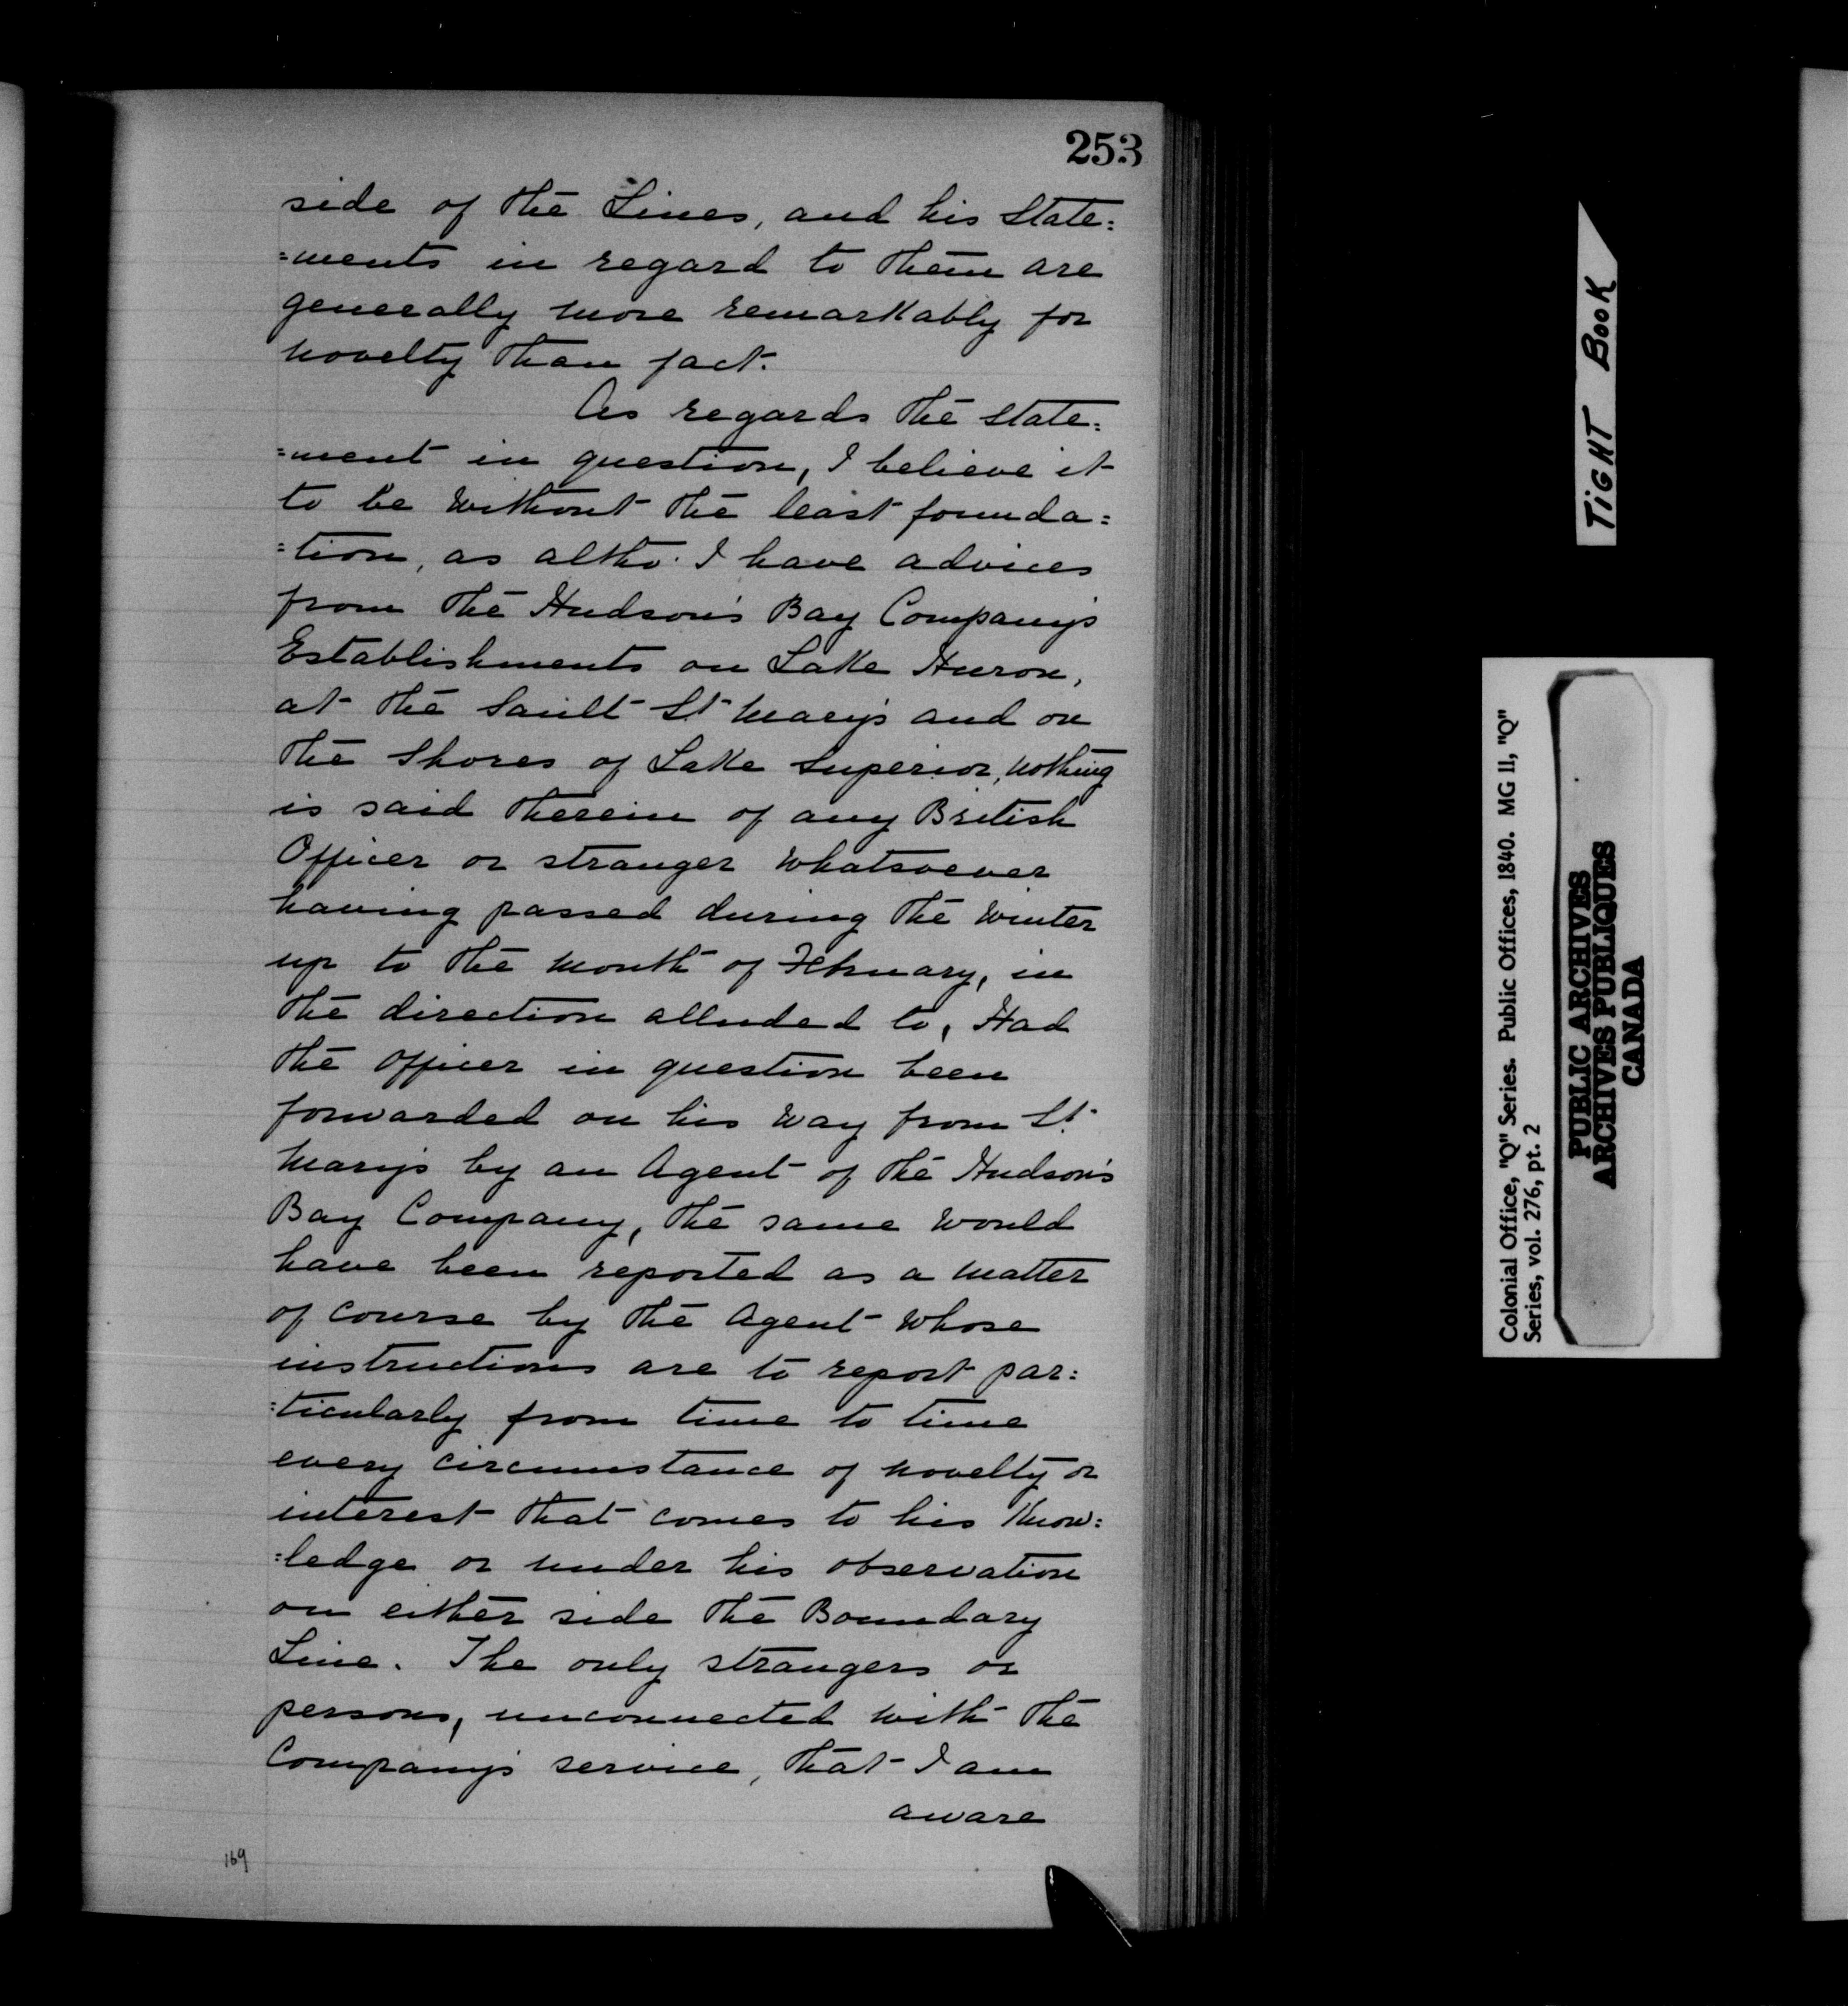 253
side of the Lines, and his State=
=ments in regard to them are
generally more remarkably for
novelty than fact.
As regards the state=
=ment in question, I believe it
to be without the least founda=
=tion, as altho' I have advices
from the Hudson's Bay Company's
Establishments on Lake Huron,
at the Sault St Mary's and on
the Shores of Lake Superior, nothing
is said therein of any British
Officer or stranger whatsoever
having passed during the Winter
up to the month of February, in
the direction alluded to, Had
the officer in question been
forwarded on his way from St.
Mary's by an Agent of the Hudson's
Bay Company, the same would
have been reported as a matter
of course by the Agent whose
instructions are to report par=
=ticularly from time to time
every circumstance of novelty or
interest that comes to his Know=
=ledge or under his observation
on either side the Boundary
Line. The only strangers or
persons, unconnected with the
Company's service, that I am
aware
169
TIGHT BOOK
Colonial Office, "Q" Series. Public Offices, 1840. MG 11, "Q"
Series, vol. 276, pt. 2
PUBLIC ARCHIVES
ARCHIVES PUBLIQUES
CANADA